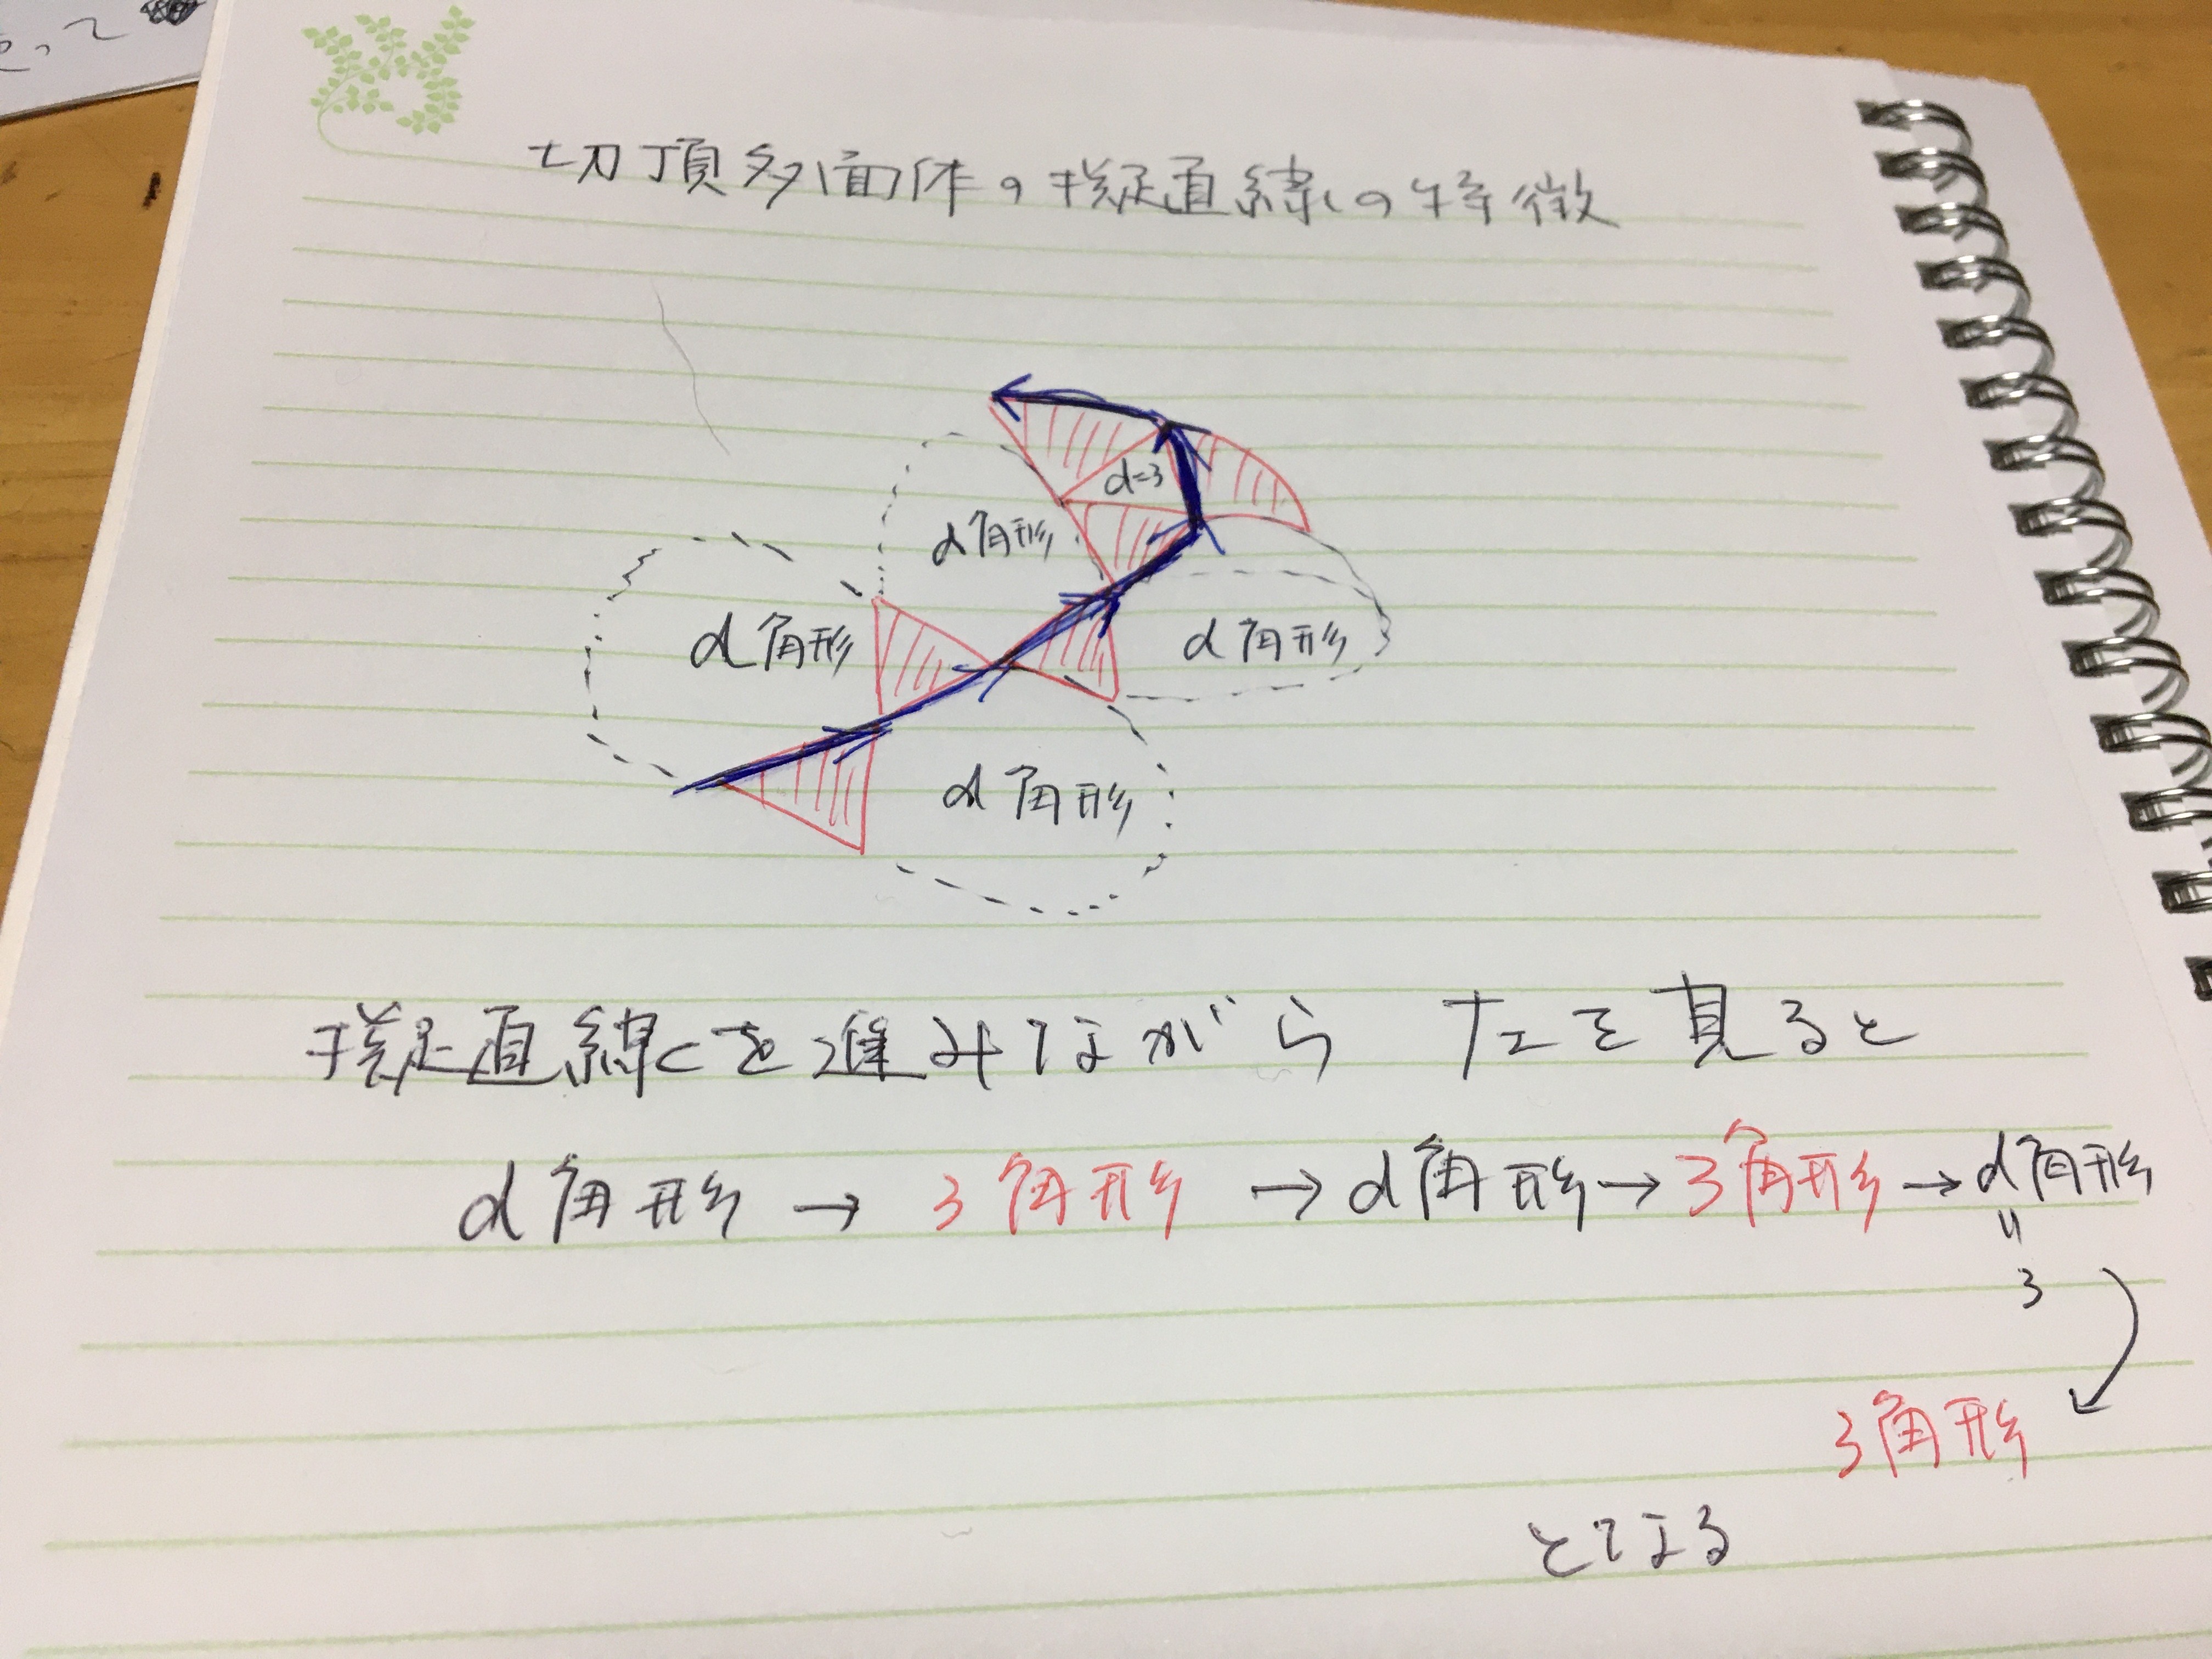 って
切頂多面体の擬直線の特徴
d=3
d角形
d角形
d角形
d角形
擬直線を進みながら 左を見ると
d角形 → 3角形 → d角形 → 3角形 → d角形
=
3
3角形
となる